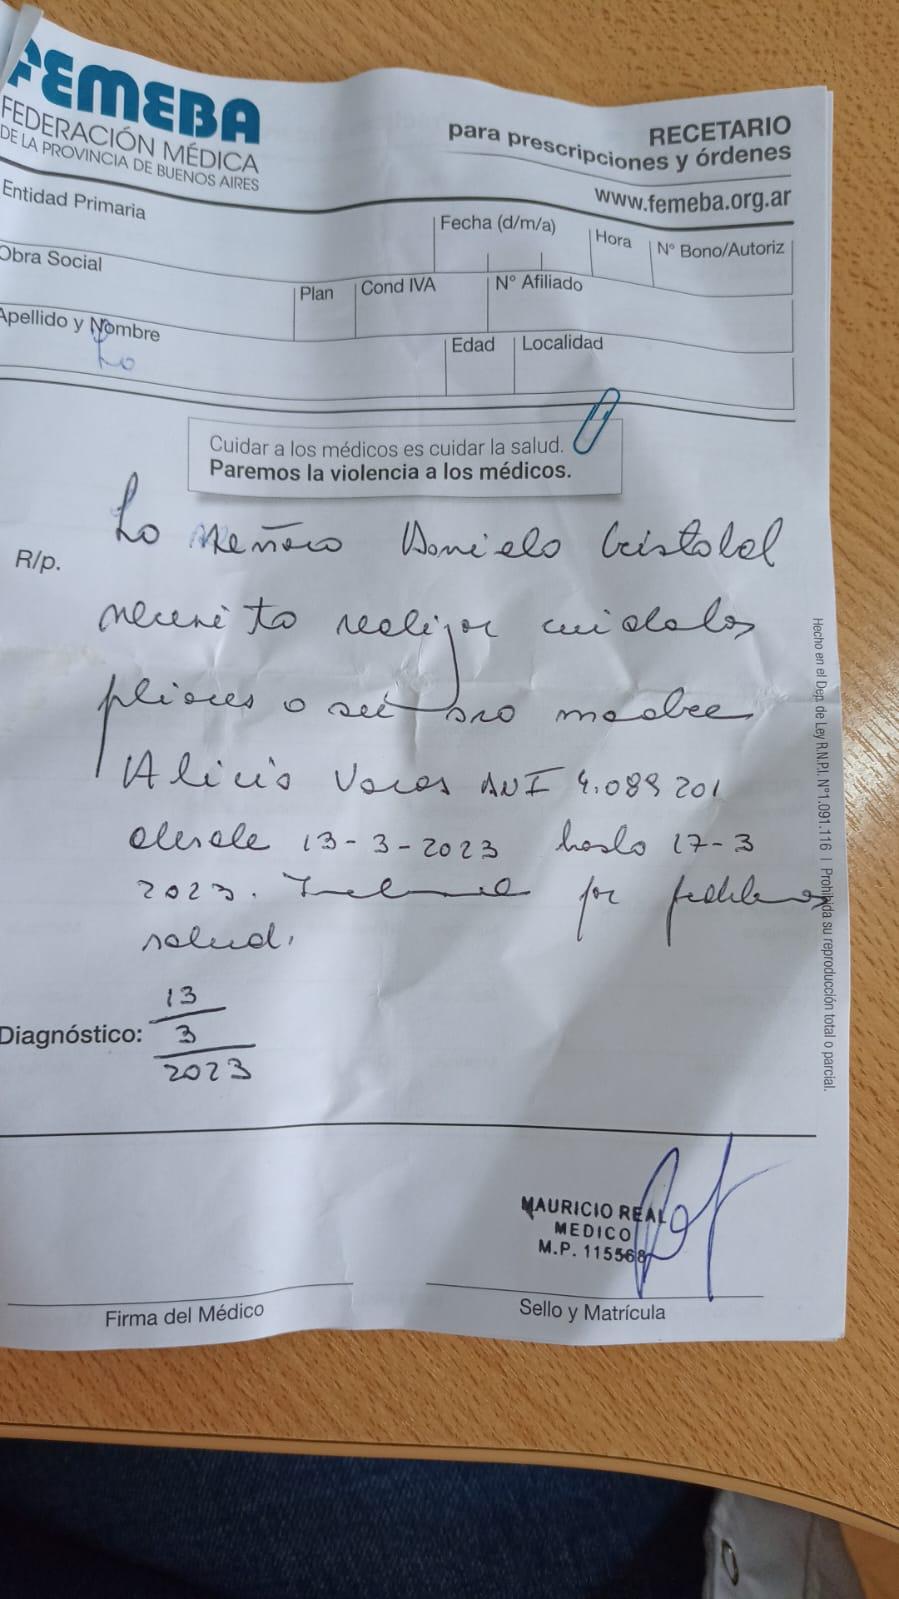 FEMEBA
FEDERACIÓN MÉDICA
DE LA PROVINCIA DE BUENOS AIRES
RECETARIO
para prescripciones y órdenes
www.femeba.org.ar
Entidad Primaria
Fecha (d/m/a)
Hora
N° Bono/Autoriz
Obra Social
Plan
Cond IVA
N° Afiliado
Apellido y Nombre
Edad
Localidad
Lo
Cuidar a los médicos es cuidar la salud.
Paremos la violencia a los médicos.
R/p.
La señora Daniela Cristobal
necesita realizar cuidados
a madre
Alicia DNI 4.089 201
desde 13-3-2023 hasta 17-3
2023. por
salud.
Diagnóstico:
13
3
2023
MAURICIO REAL
MEDICO
M.P. 115568
Firma del Médico
Sello y Matrícula
Hecho en el Dep. de Ley R.N.P.I. N°1.091.116 | Prohibida su reproducción total o parcial.